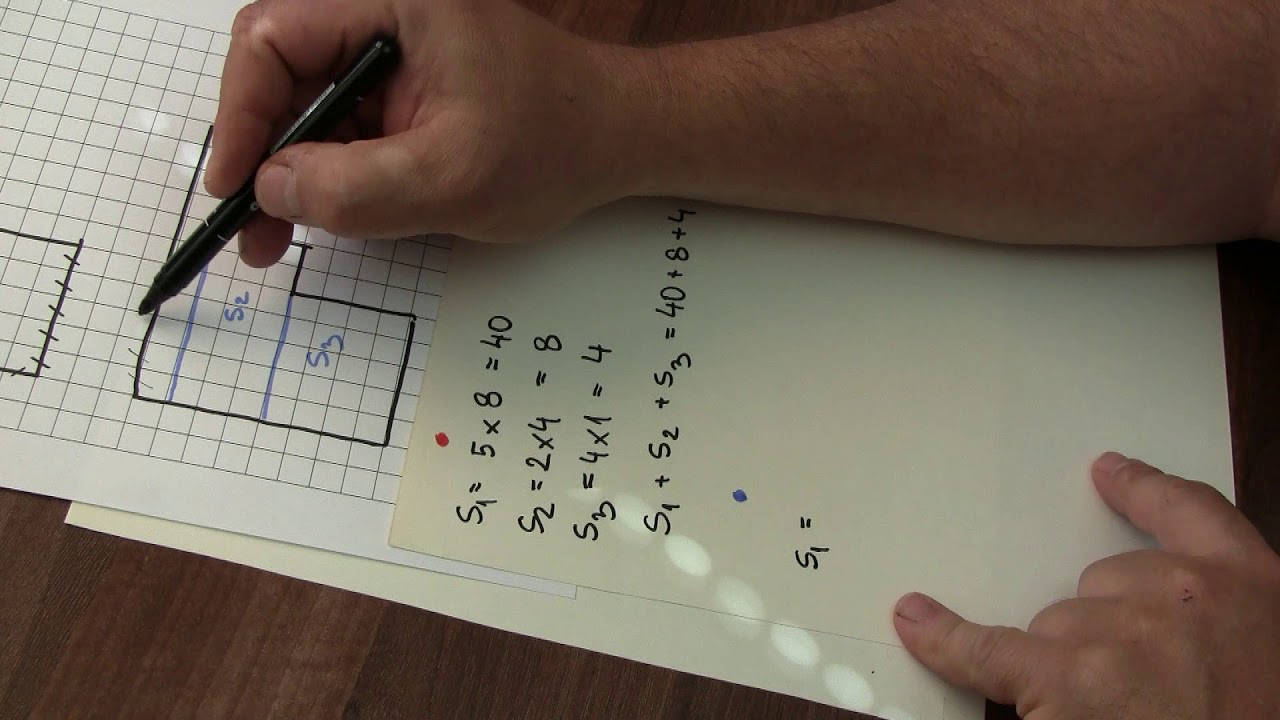 S2
S3
S1 = 5 x 8 = 40
S2 = 2x4 = 8
S3 = 4x1 = 4
S1 + S2 + S3 = 40+8+4
S1 =